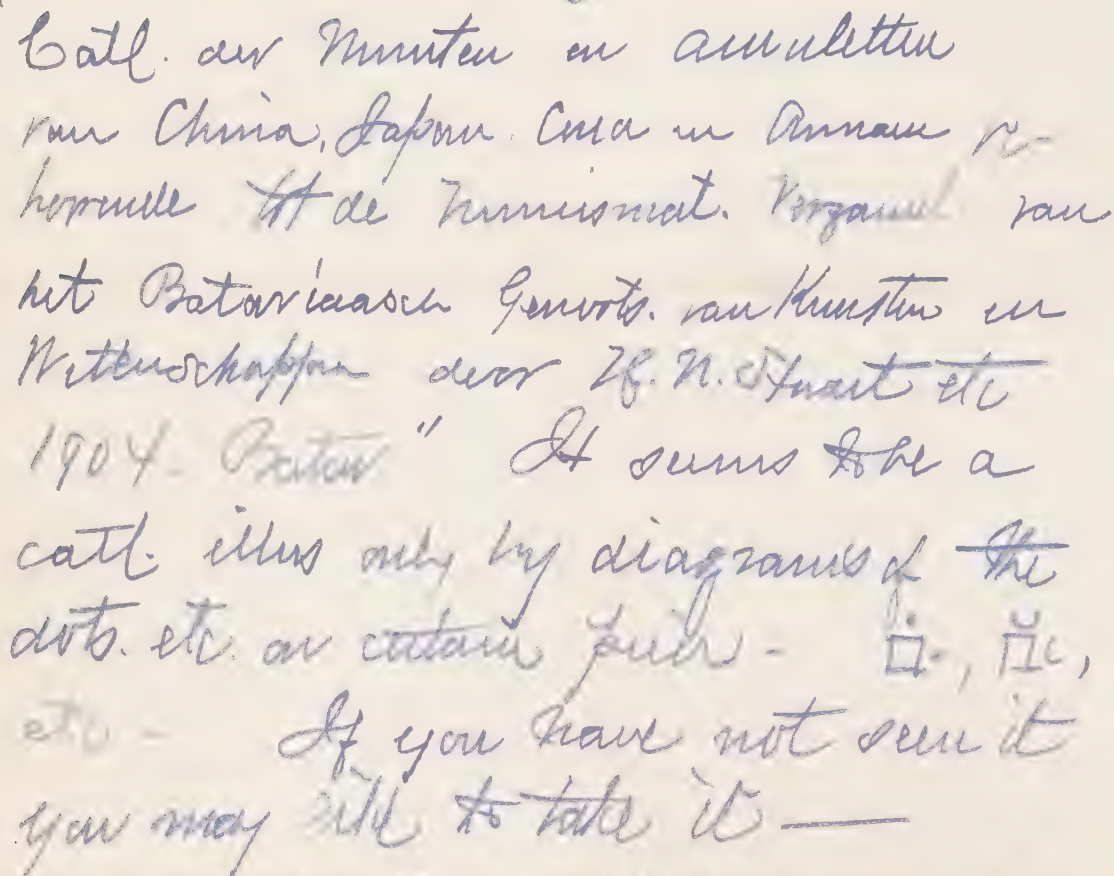 Catl. der Munten en amuletten
van China, Japan. Corea en Annam
behoorende tot de Numismat. Verzamel van
het Bataviaasch Genoots. van Kunsten en
Wettenschappen door H. N. Stuart etc
1904 - Batav" It seems to be a
catl. illus only by diagrams of the
dots. etc. on certain pieces -
etc - If you have not seen it
you may like to take it —